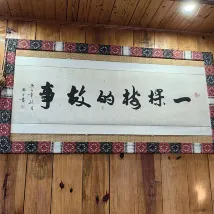 一棵樹的故事